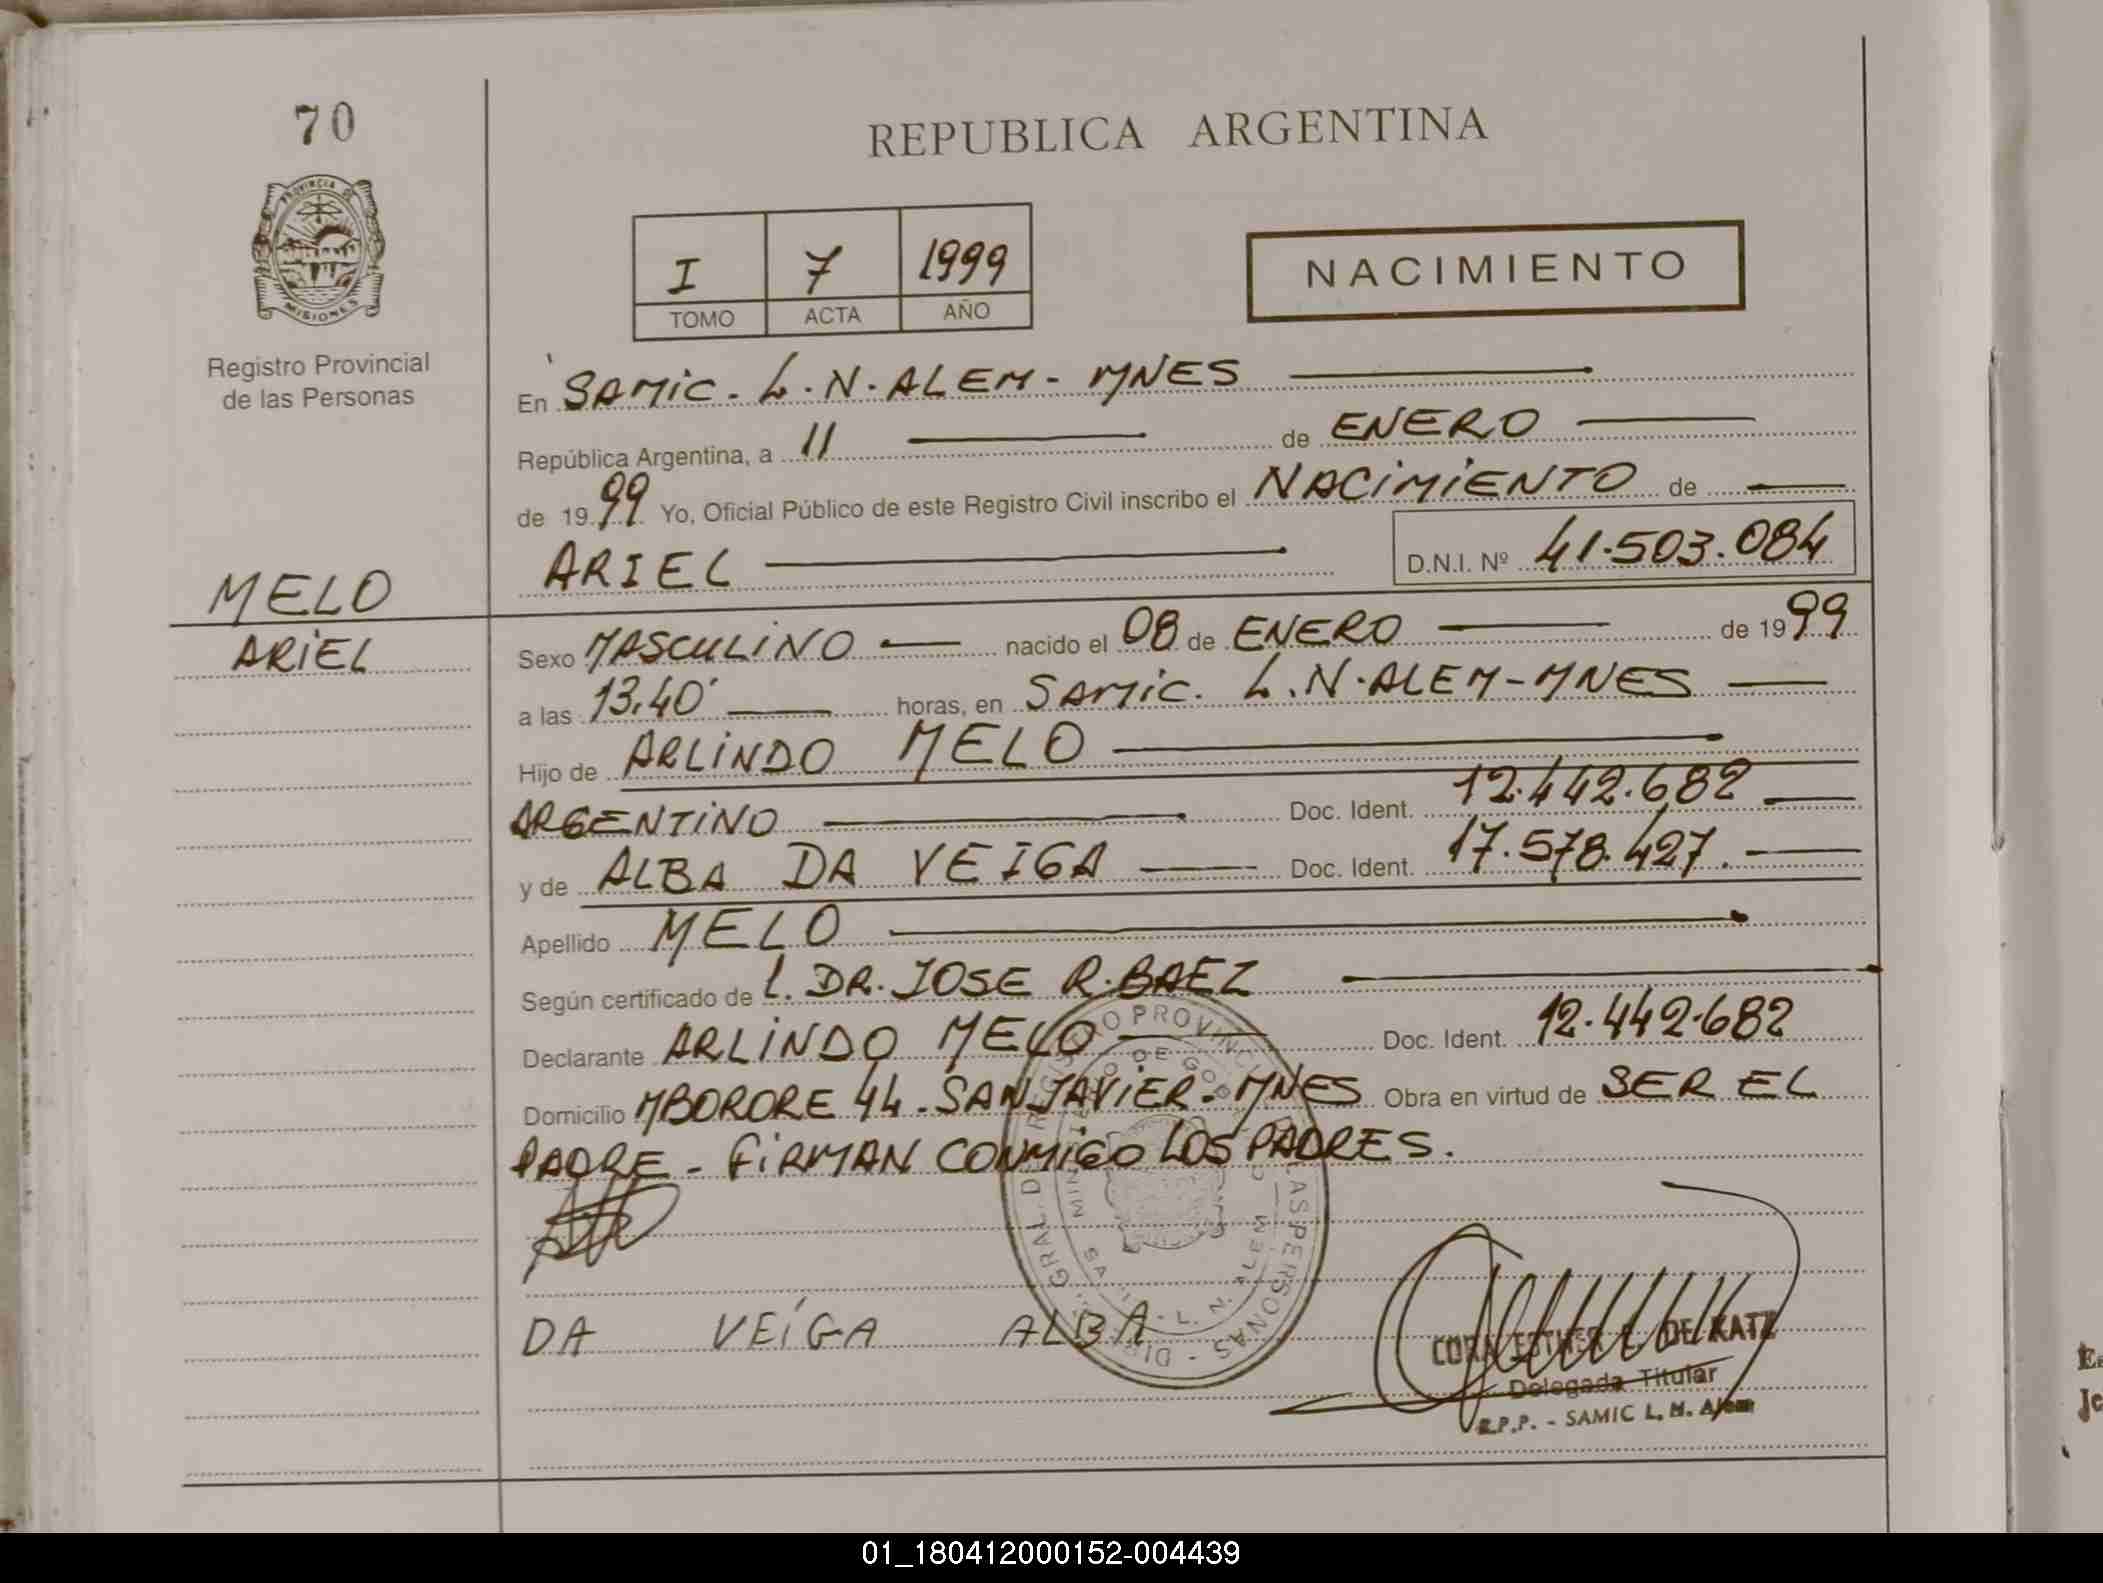 70
REPUBLICA ARGENTINA
PROVINCIA DE
MISIONES
Registro Provincial
de las Personas
I 7 1999
TOMO ACTA AÑO
NACIMIENTO
En SAMIC. L.N.ALEM-MNES
República Argentina, a 11 de ENERO
de 1999 Yo, Oficial Público de este Registro Civil inscribo el NACIMIENTO de
ARIEL D.N.I. Nº 41.503.084
MELO
ARIEL
Sexo MASCULINO nacido el 08 de ENERO de 1999
a las 13.40' horas, en SAMIC. L.N.ALEM-MNES
Hijo de ARLINDO MELO
ARGENTINO Doc. Ident. 12.442.682
y de ALBA DA VEIGA Doc. Ident. 17.578.427.
Apellido MELO
Según certificado de L. DR. JOSE R. BAEZ
Declarante ARLINDO MELO Doc. Ident. 12.442.682
Domicilio MBORORE 44-SAN JAVIER-MNES Obra en virtud de SER EL
PADRE - FIRMAN CONMIGO LOS PADRES.
DA VEIGA ALBA
DE KATZ
Delegada Titular
R.P.P. - SAMIC L. N. Alem
01_180412000152-004439